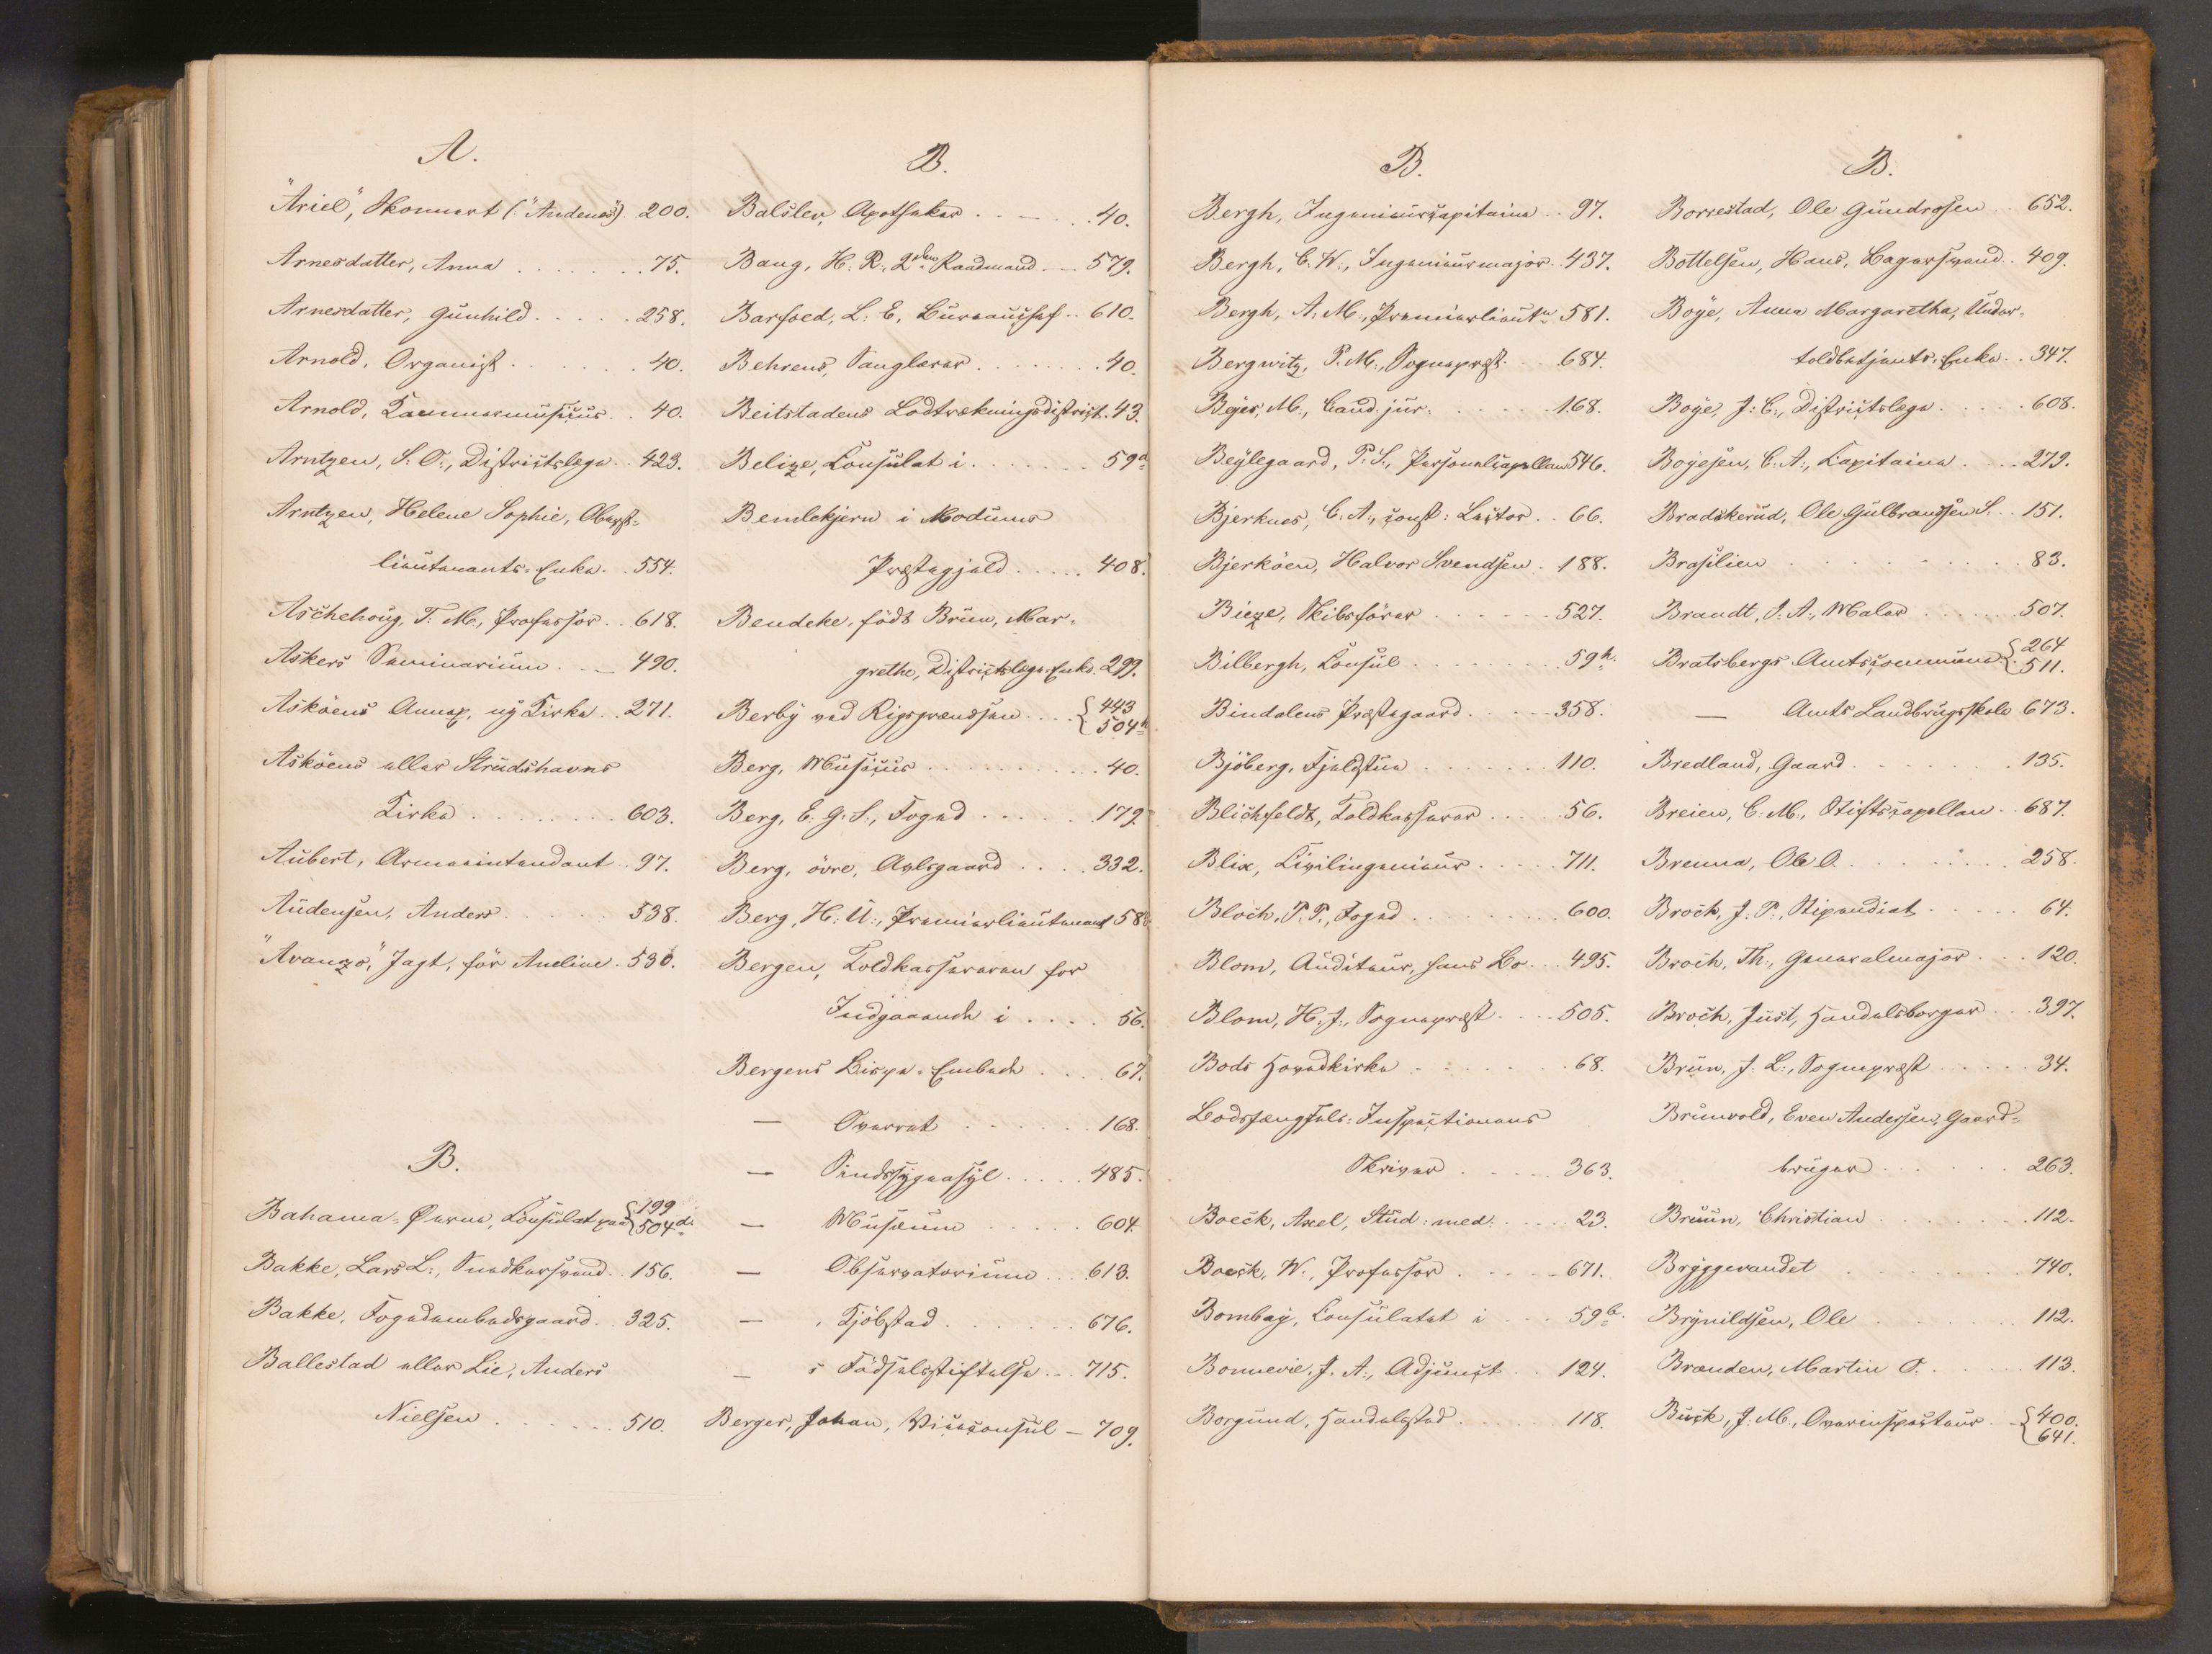 A.
"Ariel", Skonnert ("Andenes") 200.
Arnesdatter, Anna . . . . . . . 75.
Arnesdatter, Gunhild . . . . . 258.
Arnold, Organist . . . . . . . 40.
Arnold, Kammermusicus . . 40.
Arntzen, S. O., Districtslæge . . 423.
Arntzen, Helene Sophie, Oberst-
lieutenants-Enke . . 554.
Aschehoug, T. M., Professor . . 618.
Askers Seminarium . . — 490.
Askøens Annex, ny Kirke . . 271.
Askøens eller Strudshavns
Kirke . . . . . . . . 603.
Aubert, Armeeintendant . . 97.
Audensen, Anders . . . . . 538.
"Avanzo", Jagt, før Aneline . 530.
B.
Bahama-Øerne, Consulat paa { 199
504 d.
Bakke, Lars L., Snedkersvend . . 156.
Bakke, Fogedembedsgaard . . 325.
Ballestad eller Lie, Anders
Nielsen . . . . . . 510.
B.
Balslev, Apotheker . . — . . 40.
Bang, H. R., 2den Raadmand — 579.
Barfoed, L. E., Bureauchef . . 610.
Behrens, Sanglærer . . . . . . . 40.
Beitstadens Lodtrækningsdistrict . 43.
Belize, Consulat i . . . . . . . 59 a
Bemlekjern i Modums
Præstegjeld . . . . . 408.
Bendeke, født Brun, Mar-
grethe, Districtslæge-Enke . 299.
Berby ved Rigsgrændsen . . . . { 443
504 h
Berg, Musicus . . . . . . . . . . 40.
Berg, E. G. S., Foged . . . . . . 179.
Berg, øvre, Avlsgaard . . . . 332.
Berg, H. U., Premierlieutenant 58
Bergen, Toldkassereren for
Indgaaende i . . . . 56.
Bergens Bispe-Embede . . . . 67.
— Overret . . . . . . 168.
— Sindssygeasyl . . . . . 485.
— Musæum . . . . . 604.
— Observatorium . . . 613.
— Kjøbstad . . . . . . . 676.
— Fødselsstiftelse . . . 715.
Berger, Johan, Viceconsul — 709.
B.
Bergh, Ingenieurcapitaine . . 97.
Bergh, C. W., Ingenieurmajor . . 437.
Bergh, A. M., Premierlieutn 581.
Bergwitz, P. M., Sognepræst . . . 684.
Beyer, M., Cand. jur. . . . . . 168.
Beylegaard, P. S., Personelcapellan 546.
Bjerknes, C. A., const. Lector . . 66.
Bjerkøen, Halvor Svendsen . 188.
Bieze, Skibsfører . . . . . . 527.
Bilbergh, Consul . . . . . . . . 59 h.
Bindalens Præstegaard . . . . . 358.
Bjøberg, Fjeldstue . . . . . . . 110.
Blichfeldt, Toldkasserer . . . . . 56.
Blix, Civilingenieur . . . . . 711.
Bloch, P. P., Foged . . . . . . . . . 600.
Blom, Auditeur, hans Bo . . . 495.
Blom, H. J., Sognepræst . . . . 505.
Bodø Hovedkirke . . . . . . . . 68.
Bodsfængsels-Inspectionens
Skriver . . . . . 363.
Boeck, Axel, Stud. med. . . . . . 23.
Boeck, W., Professor . . . . . 671.
Bombay, Consulatet i . . . 59 b.
Bonnevie, J. A., Adjunct . . 124.
Borgund, Handelssted . . . . . . 118.
B.
Borrestad, Ole Gundrosen . . 652.
Bottelsen, Hans, Bagersvend . . 409.
Boye, Anna Margaretha, Under-
toldbetjents-Enke . . 347.
Boye, J. C., Districtslæge . . . . . 608.
Boyesen, C. A., Kapitaine . . . . 279.
Bradskerud, Ole Gulbrandsen S. . . 151.
Brasilien . . . . . . . . . . . . 83.
Brandt, J. A., Maler . . . . . . 507.
Bratsbergs Amtscommune { 264
511.
— Amts Landbrugsskole 673.
Bredland, Gaard . . . . . . . . 135.
Breien, C. M., Stiftscapellan . . 687.
Brenna, Ole O. . . . . . . . . 258.
Broch, J. P., Stipendiat . . . . . 64.
Broch, Th., Generalmajor . . . 120.
Broch, Just, Handelsborger . . . 397.
Brun, J. L., Sognepræst . . . . . 34.
Brunvold, Even Andersen, Gaard-
bruger . . . . . . 263.
Bruun, Christian . . . . . . . . 112.
Bryggevandet . . . . . . . . 740.
Brynildsen, Ole . . . . . . 112.
Brænden, Martin O. . . . . . 113.
Buck, J. M., Overinspecteur . . { 400.
641.